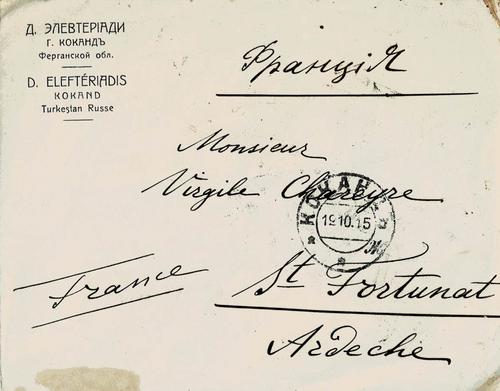 Д. ЭЛЕВТЕРІАДИ
Г. КОКАНДЪ
Ферганской обл.
D. ELEFTÉRIADIS
KOKAND
Turkestan Russe
Франція
Monsieur
Virgile Chareyre
КОКАНДЪ
19.10.15
France
St Fortunat
Ardeche